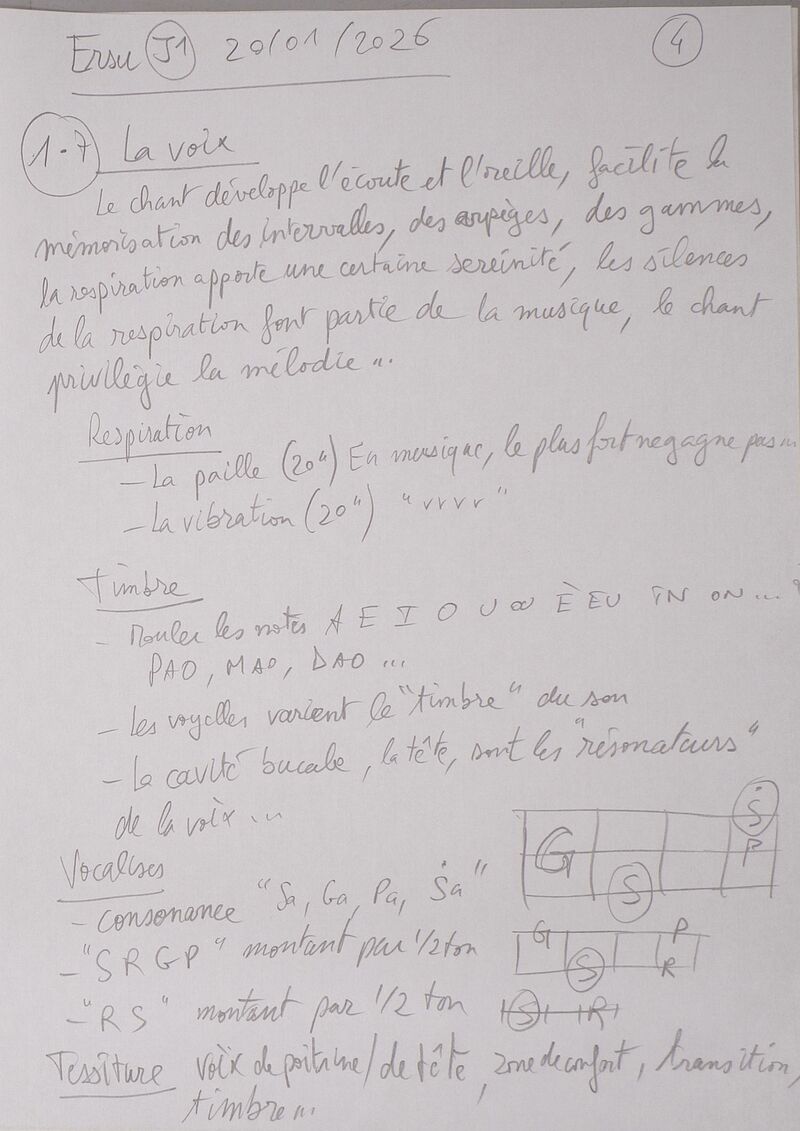 Ersu J1 20/01/2026 4
1.7 La voix
Le chant développe l'écoute et l'oreille, facilite la
mémorisation des intervalles, des arpèges, des gammes,
la respiration apporte une certaine sereinité, les silences
de la respiration font partie de la musique, le chant
privilégie la mélodie ...
Respiration
- La paille (20") En musique, le plus fort ne gagne pas ...
- La vibration (20") "vrrr"
Timbre
- Rouler les notes A E I O U È EU IN ON ...
PAO, MAO, DAO ...
- Les voyelles varient le "timbre" du son
- La cavité bucale, la tête, sont les "résonateurs"
de la voix ...
Vocalises
- Consonance "Sa, Ga, Pa, Ṡa"
- "S R G P" montant par 1/2 ton
- "R S" montant par 1/2 ton
Tessiture voix de poitrine/de tête, zone de confort, transition,
timbre ...
Ṡ
G P
S
G P
S R
S R